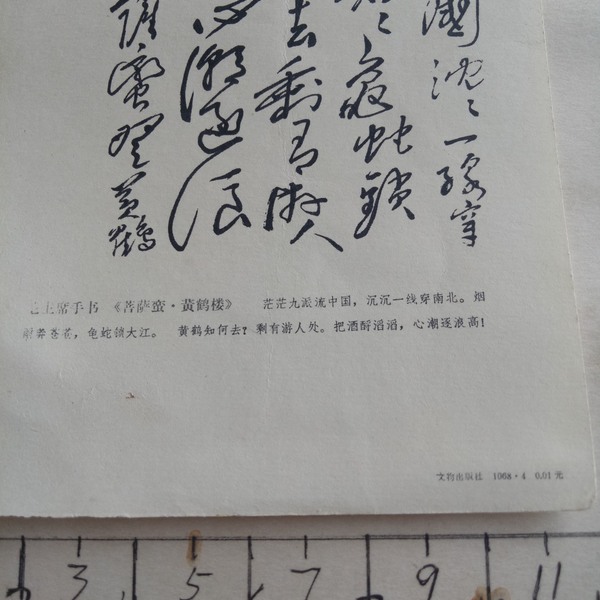 國沈〻一線穿
〻龜蛇鎖
去剩有遊人
心潮逐浪
薩蠻登黃鶴
毛主席手书 《菩萨蛮·黄鹤楼》 茫茫九派流中国，沉沉一线穿南北。烟
雨莽苍苍，龟蛇锁大江。 黄鹤知何去？剩有游人处。把酒酹滔滔，心潮逐浪高！
文物出版社 1968·4 0.01元
3 5 7 9 11